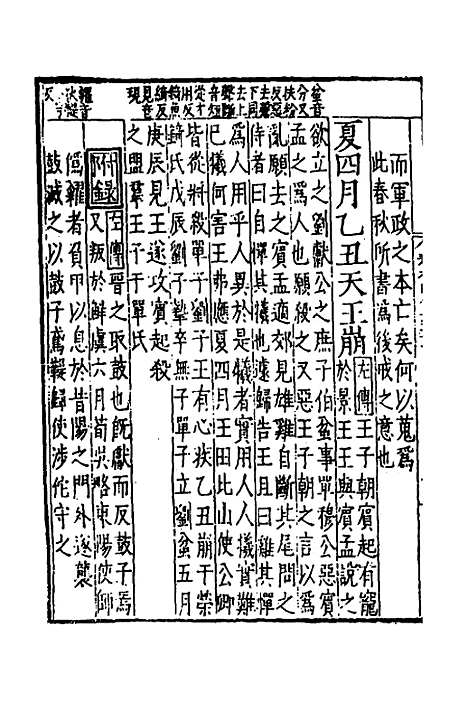 蚠音
分又
扶粉
反惡
去聲
下同
去上
聲斷
音短
從才
用反
錡魚
綺反
見音
現
糴音
狄鞮
而軍政之本亡矣何以蒐爲
此春秋所書爲後戒之意也
夏四月乙丑天王崩 左傳王子朝賓起有寵
於景王王與賓孟說之
欲立之劉獻公之庶子伯蚠事單穆公惡賓
孟之爲人也願殺之又惡王子朝之言以爲
亂願去之賓孟適郊見雄雞自斷其尾問之
侍者曰自憚其犧也遽歸告王且曰雞其憚
爲人用乎人異於是犧者實用人人犧實難
已犧何害王弗應夏四月王田北山使公卿
皆從將殺單子劉子王有心疾乙丑崩于榮
錡氏戊辰劉子摯卒無子單子立劉蚠五月
庚辰見王遂攻賓起殺
之盟羣王子于單氏
附錄 左傳晉之取鼓也既獻而反鼓子焉
又叛於鮮虞六月荀吳略東陽使師
僞糴者負甲以息於昔陽之門外遂襲
鼓滅之以鼓子鳶鞮歸使涉佗守之